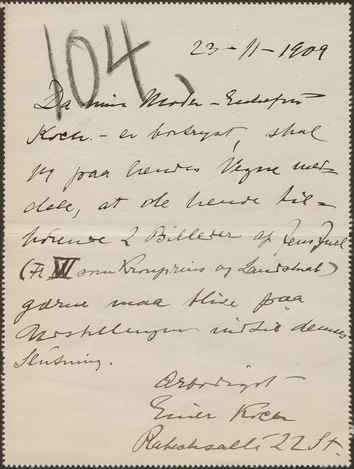 104,
23-11-1909
Da min Moder - Enkefru
Koch - er bortrejst, skal
jeg paa hendes Vegne med=
dele, at de hende til=
hørende 2 Billeder af Jens Juel
(Fr. VI som Kronprins og Landskab)
gærne maa blive paa
Udstillingen indtil dennes
Slutning.
Ærbødigst
Einer Koch
22 St.